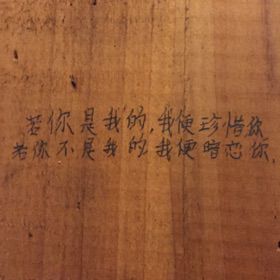 若你是我的,我便珍惜你
若你不是我的,我便暗恋你,